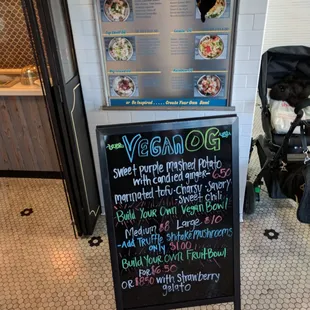 or Be Inspired
Create Your Own Bowl
VEGAN OG
sweet purple mashed potato
with candied ginger- 6.50
marinated tofu-charsiu-savory
-sweet chili
Build Your Own Vegan Bowl
Medium $8 Large $10
-Add Truffle Shitake Mushrooms
only $1.00
Build Your Own Fruit Bowl
FOR $6.50
OR $8.50 with Strawberry
gelato